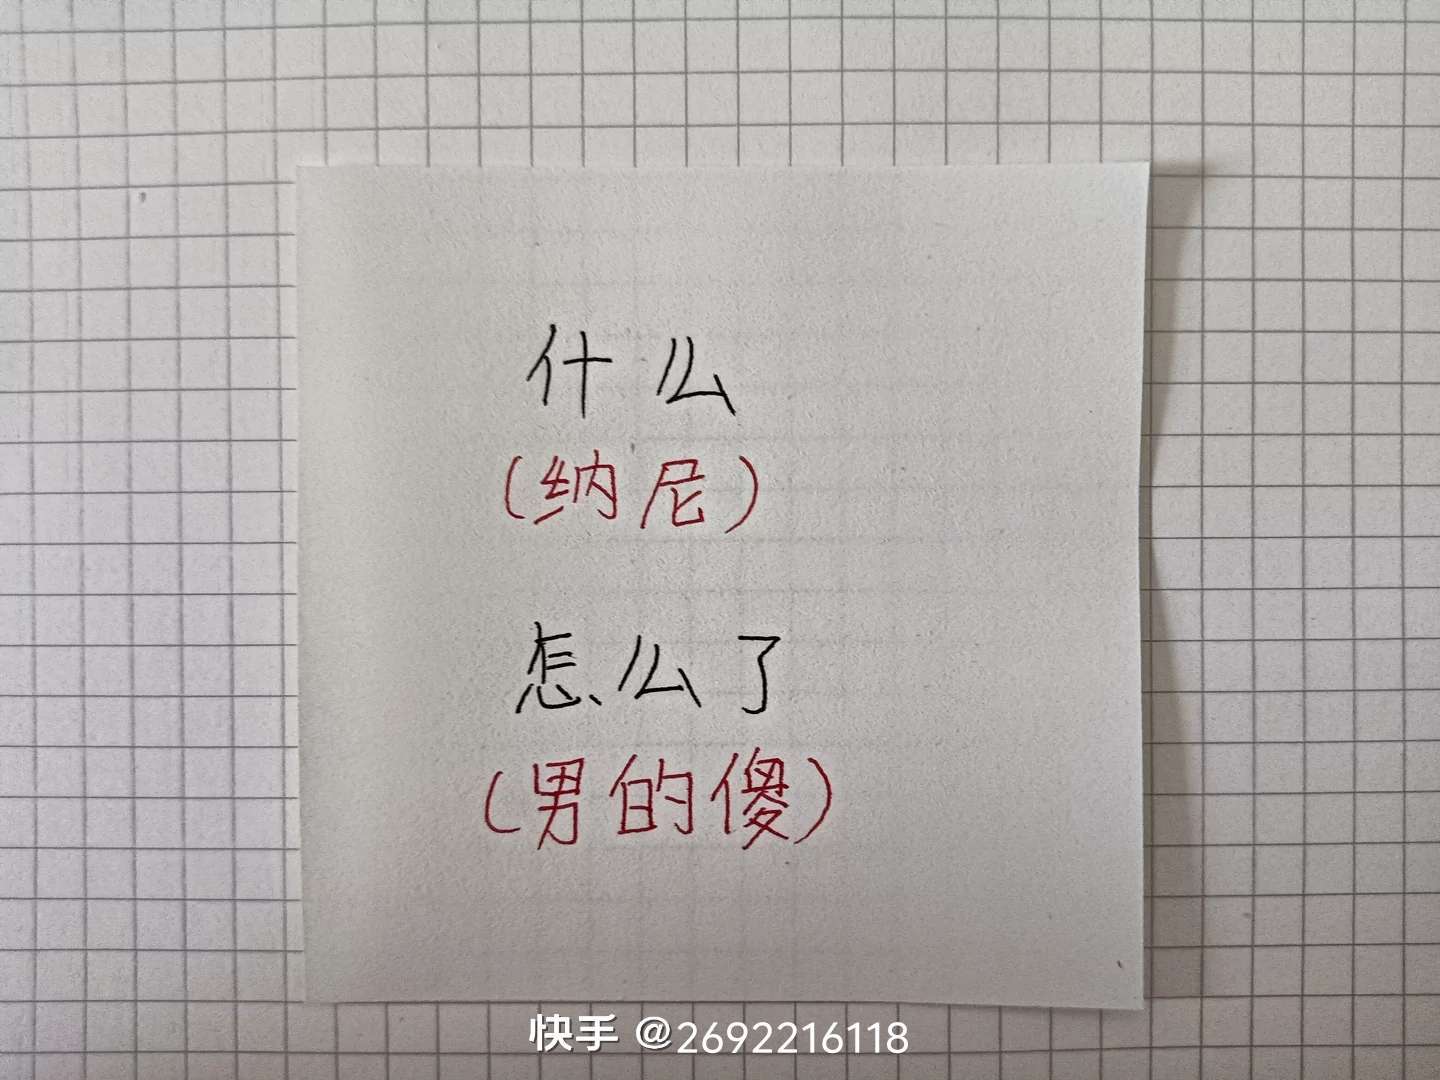 什么
(纳尼)
怎么了
(男的傻)
快手 @2692216118